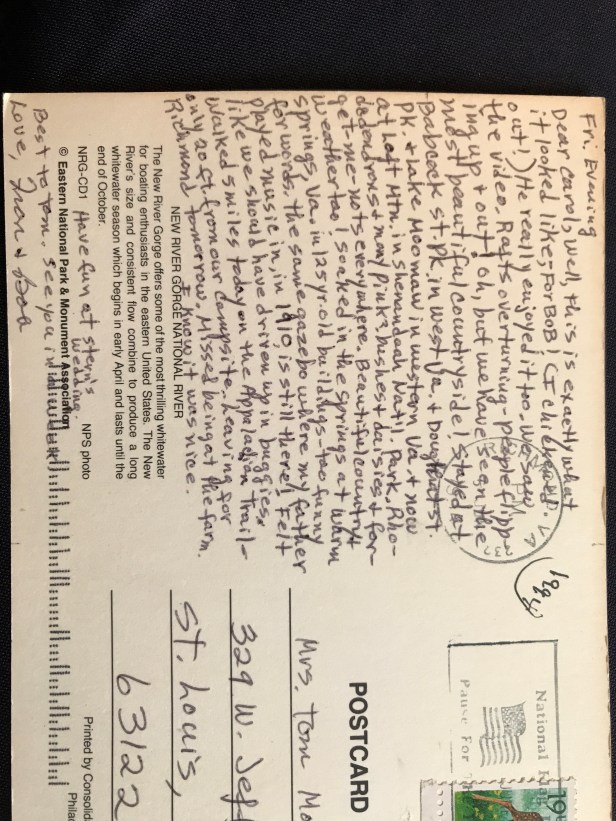 Fri. Evening
Dear Carol, Well, this is exactly what
it looked like,- For BOB! (I chickened
out!) He really enjoyed it too. We saw
the video. Rafts overturning people flipp-
ing up & out! Oh, but we have seen the
most beautiful countryside! Stayed at
Babcock St. Pk. in West Va. & Douthat St.
Pk. & Lake Moomaw in western Va. & now
at Loft Mtn. in Shenandoah Nat'l. Park. Rho-
dodendrons & many pink bushes & daisies & for-
get-me-nots everywhere. Beautiful country &
weather too! I soaked in the springs at Warm
Springs, Va. in 125 yr. old buildings - too funny
for words. The same gazebo where my father
played music in, in 1910, is still there! Felt
like we should have driven up in buggies.
Walked 5 miles today on the Appalacian Trail -
only 20 ft. from our campsite. Leaving for
Richmond tomorrow. Missed being at the farm.
I know it was nice.
NEW RIVER GORGE NATIONAL RIVER
The New River Gorge offers some of the most thrilling whitewater
for boating enthusiasts in the eastern United States. The New
River's size and consistent flow combine to produce a long
whitewater season which begins in early April and lasts until the
end of October.
NRG-CD1
Have fun at Stern's
wedding.
NPS photo
© Eastern National Park & Monument Association
Best to Tom. See you in
Love, Fran & Bob
1994
National
Pause For
19
POSTCARD
Mrs. Tom Mo
329 W. Jef
St. Louis,
63122
Printed by Consolid
Phila